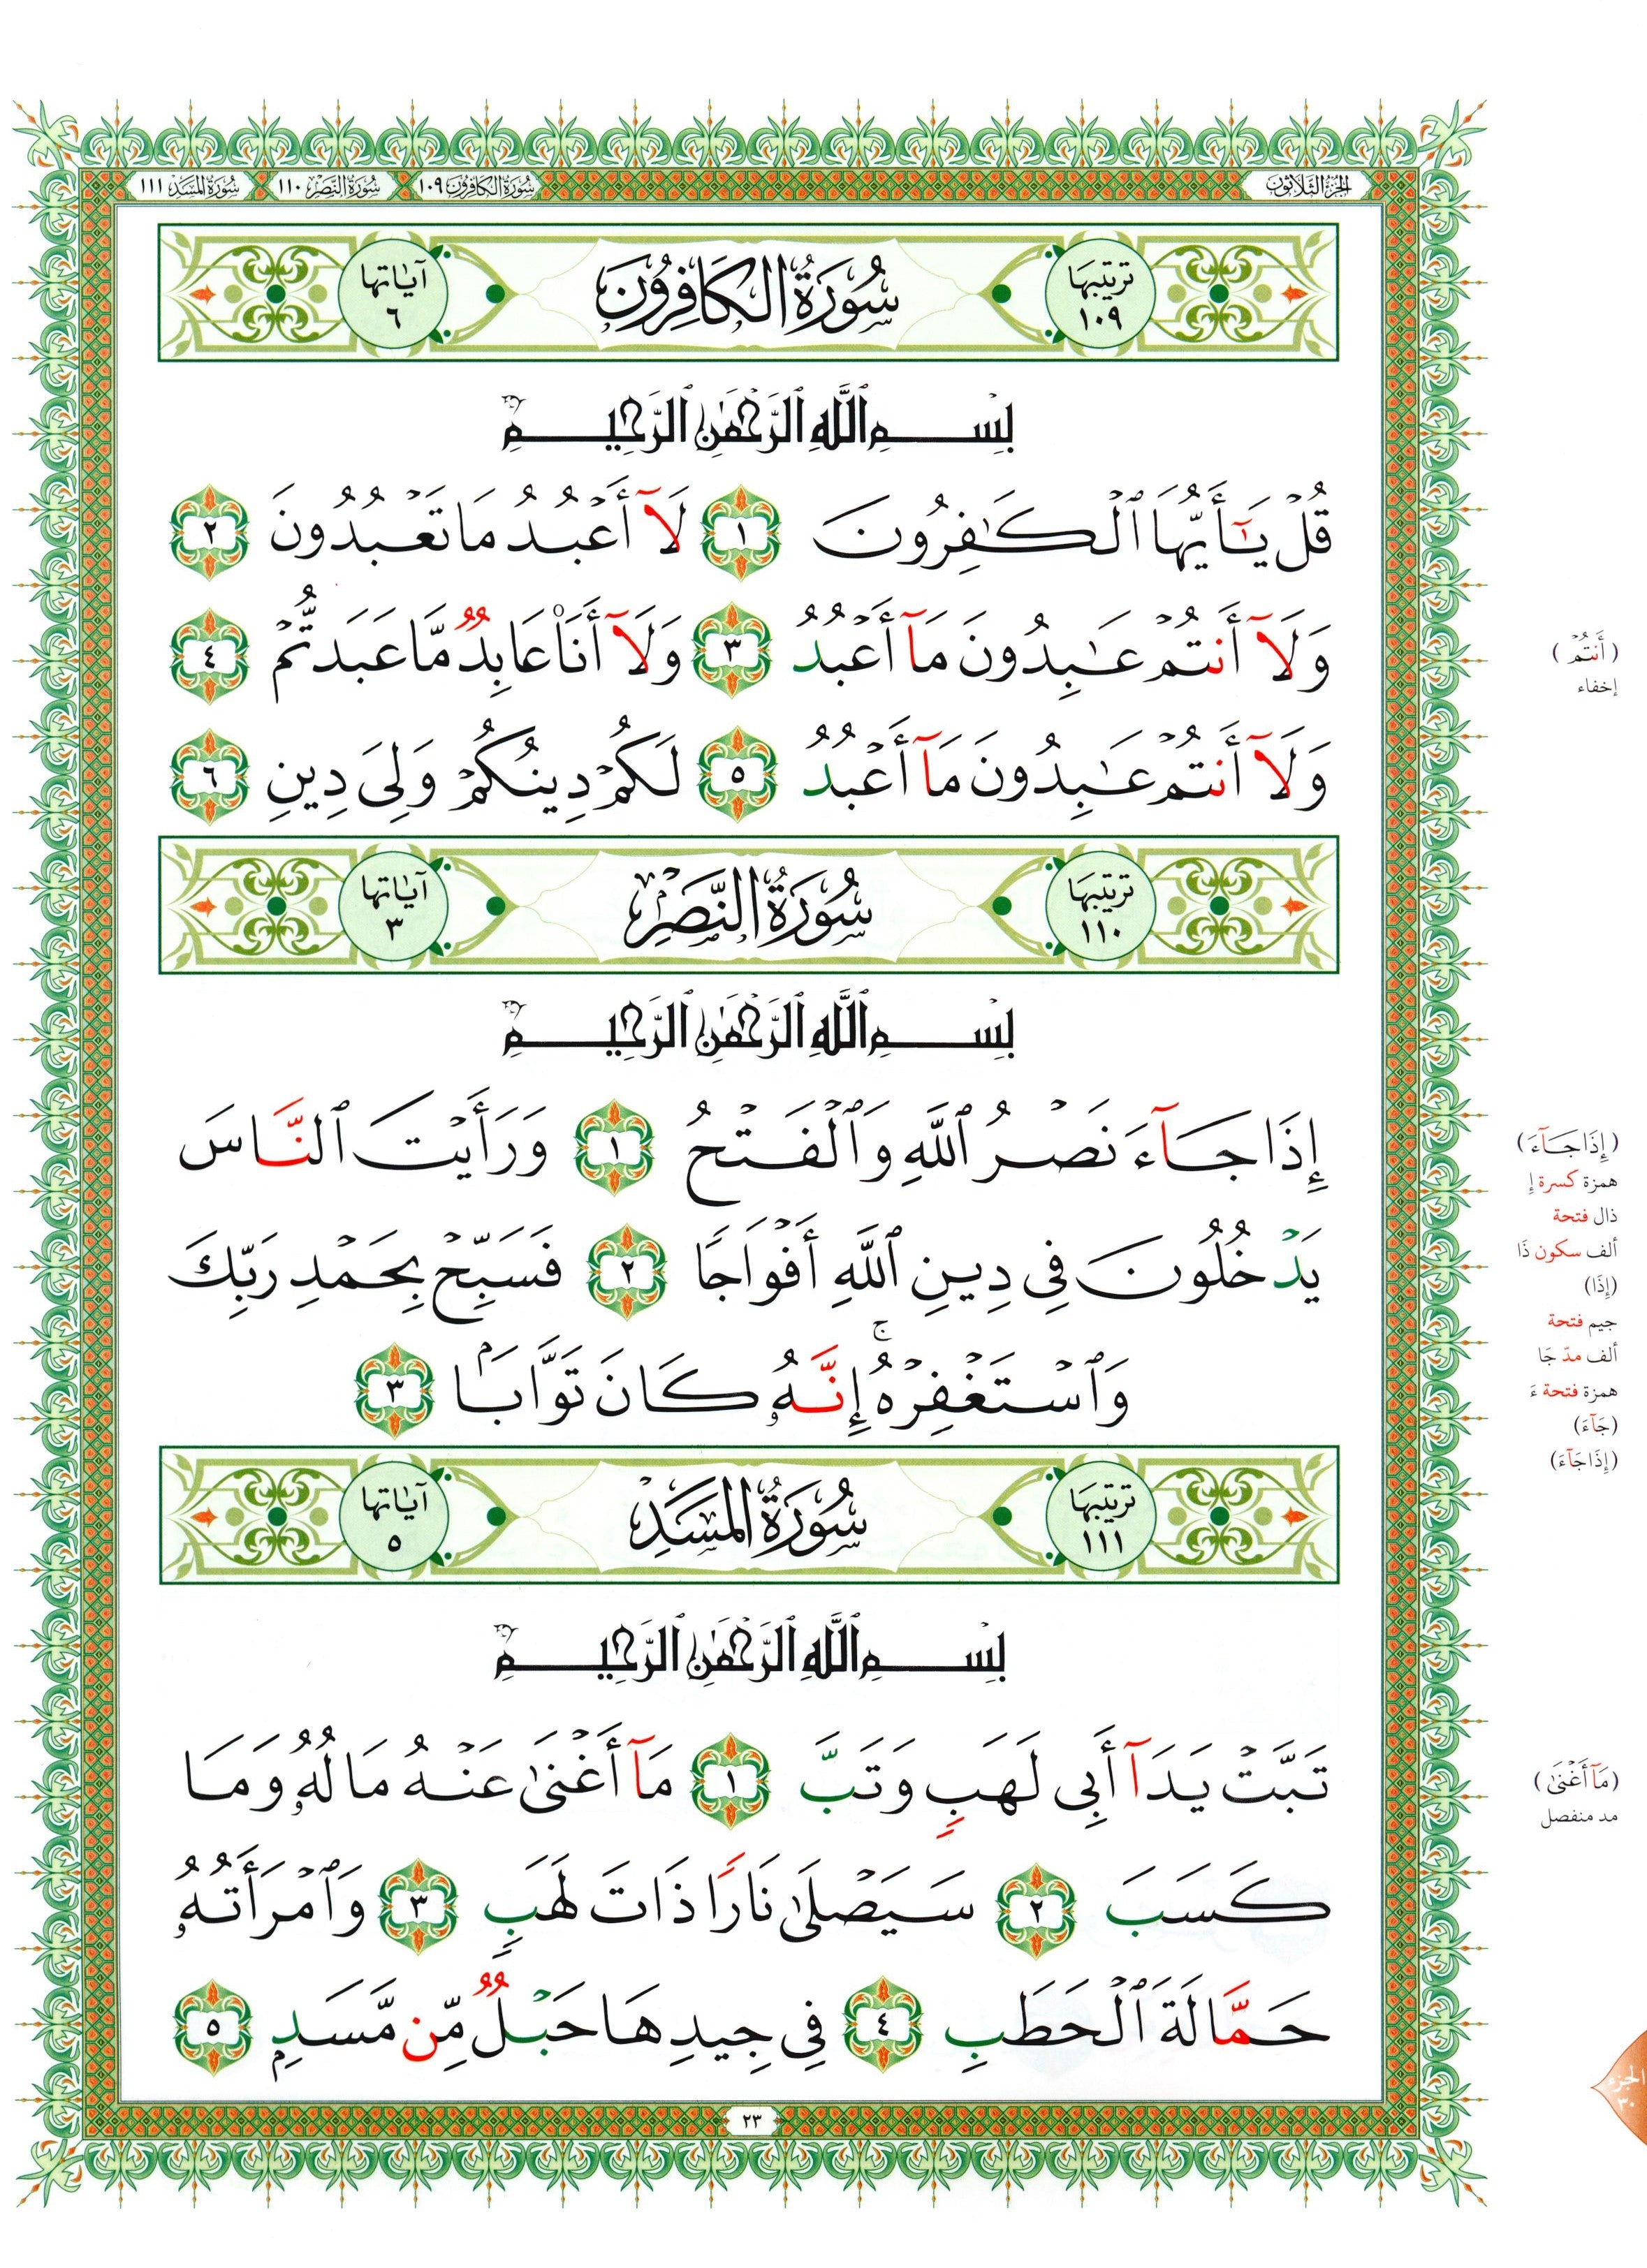 الجزء الثلاثون
سورة الكافرون ١٠٩
سورة النصر ١١٠
سورة المسد ١١١
ترتيبها ١٠٩
سُورَةُ الكَافِرُونَ
آياتها ٦
بِسْمِ ٱللَّهِ ٱلرَّحْمَٰنِ ٱلرَّحِيمِ
قُلْ يَـٰٓأَيُّهَا ٱلْكَـٰفِرُونَ ١ لَآ أَعْبُدُ مَا تَعْبُدُونَ ٢
وَلَآ أَنتُمْ عَـٰبِدُونَ مَآ أَعْبُدُ ٣ وَلَآ أَنَا۠ عَابِدٌ مَّا عَبَدتُّمْ ٤
وَلَآ أَنتُمْ عَـٰبِدُونَ مَآ أَعْبُدُ ٥ لَكُمْ دِينُكُمْ وَلِىَ دِينِ ٦
ترتيبها ١١٠
سُورَةُ النَّصْرِ
آياتها ٣
بِسْمِ ٱللَّهِ ٱلرَّحْمَٰنِ ٱلرَّحِيمِ
إِذَا جَآءَ نَصْرُ ٱللَّهِ وَٱلْفَتْحُ ١ وَرَأَيْتَ ٱلنَّاسَ
يَدْخُلُونَ فِى دِينِ ٱللَّهِ أَفْوَاجًا ٢ فَسَبِّحْ بِحَمْدِ رَبِّكَ
وَٱسْتَغْفِرْهُ ۚ إِنَّهُۥ كَانَ تَوَّابَۢا ٣
ترتيبها ١١١
سُورَةُ المَسَدِ
آياتها ٥
بِسْمِ ٱللَّهِ ٱلرَّحْمَٰنِ ٱلرَّحِيمِ
تَبَّتْ يَدَآ أَبِى لَهَبٍ وَتَبَّ ١ مَآ أَغْنَىٰ عَنْهُ مَالُهُۥ وَمَا
كَسَبَ ٢ سَيَصْلَىٰ نَارًا ذَاتَ لَهَبٍ ٣ وَٱمْرَأَتُهُۥ
حَمَّالَةَ ٱلْحَطَبِ ٤ فِى جِيدِهَا حَبْلٌ مِّن مَّسَدٍۭ ٥
٢٣
( أَنتُمْ )
إخفاء
( إِذَا جَآءَ )
همزة كسرة إِ
ذال فتحة
ألف سكون ذَا
(إِذَا)
جيم فتحة
ألف مدّ جَا
همزة فتحة ءَ
(جَآءَ)
(إِذَا جَآءَ)
( مَآ أَغْنَىٰ )
مد منفصل
الجزء
٣٠